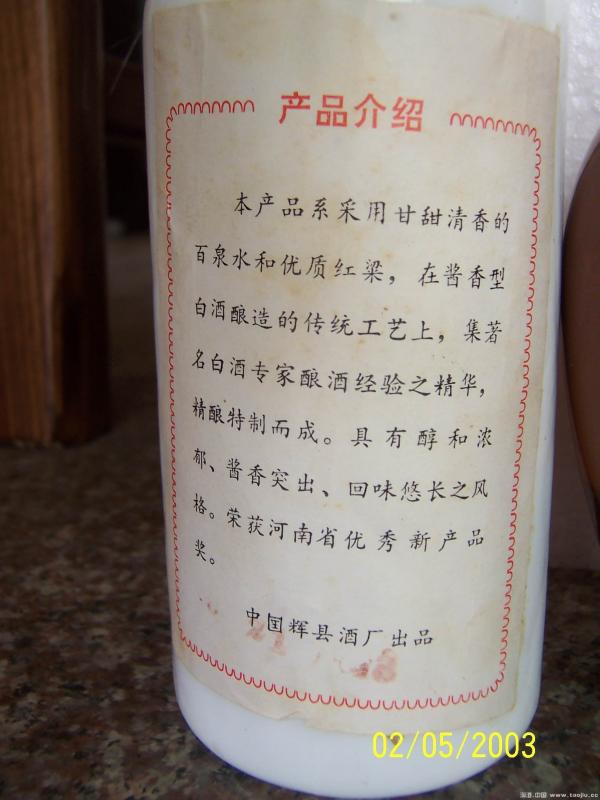 产品介绍
本产品系采用甘甜清香的
百泉水和优质红粱，在酱香型
白酒酿造的传统工艺上，集著
名白酒专家酿酒经验之精华，
精酿特制而成。具有醇和浓
郁、酱香突出、回味悠长之风
格。荣获河南省优秀新产品
奖。
中国辉县酒厂出品
02/05/2003
淘酒.中国 www.taojiu.cc